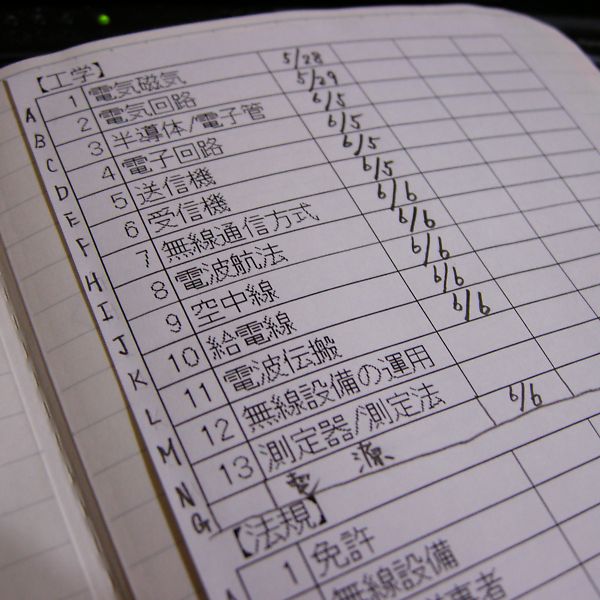 【工学】
A 1 電気磁気 5/28
B 2 電気回路 5/29
C 3 半導体/電子管 6/5
D 4 電子回路 6/5
E 5 送信機 6/5
F 6 受信機 6/5
H 7 無線通信方式 6/6
I 8 電波航法 6/6
J 9 空中線 6/6
K 10 給電線 6/6
L 11 電波伝搬 6/6
M 12 無線設備の運用
N 13 測定器/測定法
G 電源 6/6
【法規】
1 免許
無線設備
事者